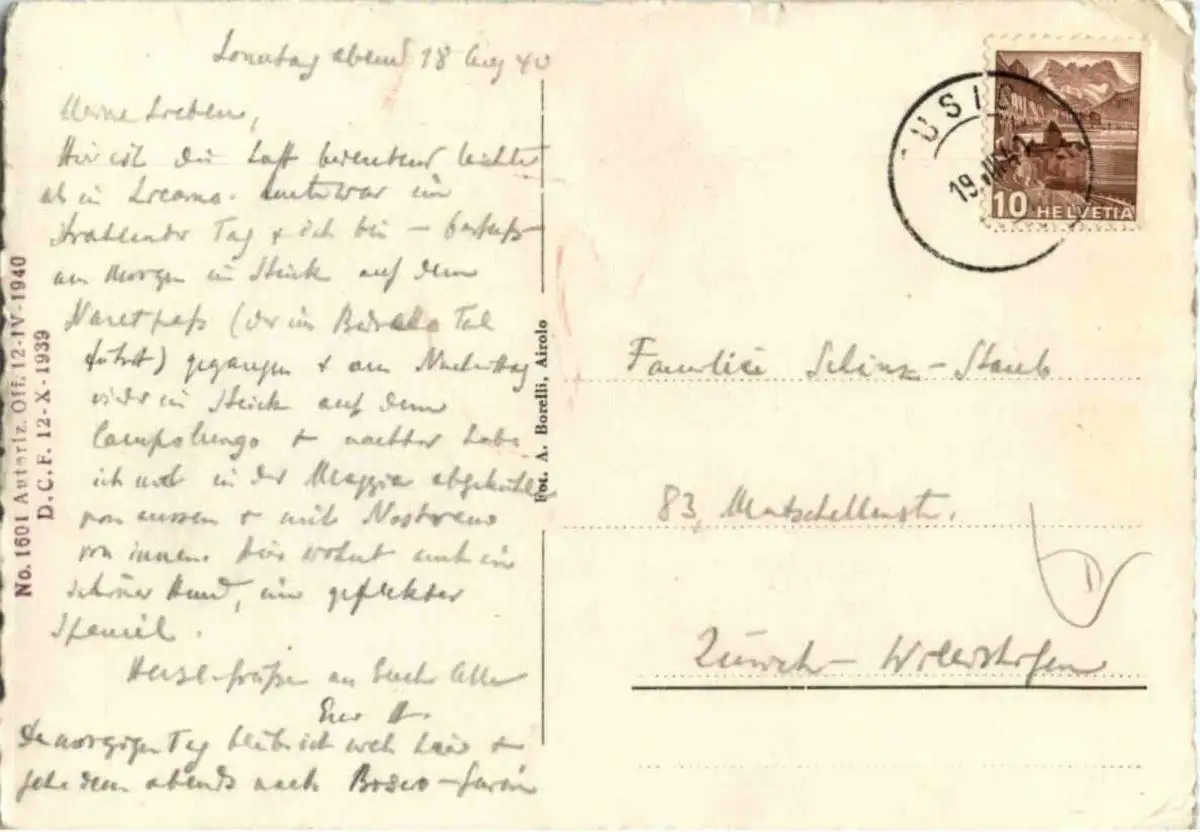 Sonntag abend 18 Aug 40
Meine Lieben,
Hier ist die Luft bedeutend leichter
als in Locarno. Heute war ein
strahlender Tag + ich bin -
am Morgen ein Stück auf den
Naretpass (der ins Bedretto Tal
führt) gegangen + am Nachmittag
wieder ein Stück auf den
Campolungo + nachher habe
ich mich in der Maggia abgekühlt
von aussen + mit Nostrano
von innen. Hier wohnt auch ein
schöner Hund, ein gefleckter
Spaniel.
Herzl. Grüße an Euch Alle
Euer H.
Den morgigen Tag bleib ich noch hier +
gehe dann abends nach Bosco-Gurin
No. 1601 Autoriz. Off. 12-IV-1940
D.C.F. 12-X-1939
Fot. A. Borelli, Airolo
USIO
19.VIII.40
10 HELVETIA
Familie Schinz-Staub
83, Mutschellenstr.
Zürich-Wollishofen